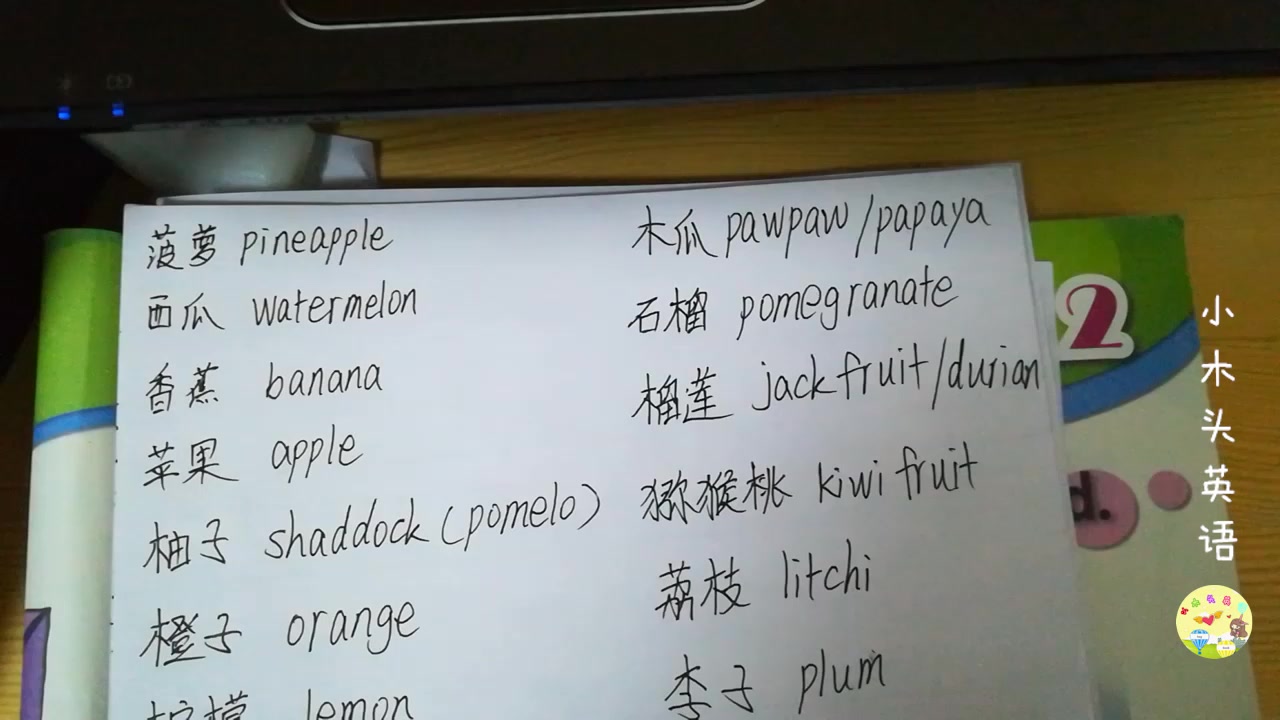 菠萝 pineapple
西瓜 watermelon
香蕉 banana
苹果 apple
柚子 shaddock (pomelo)
橙子 orange
柠檬 lemon
木瓜 pawpaw/papaya
石榴 pomegranate
榴莲 jackfruit/durian
猕猴桃 kiwi fruit
荔枝 litchi
李子 plum
2
d.
小木头英语